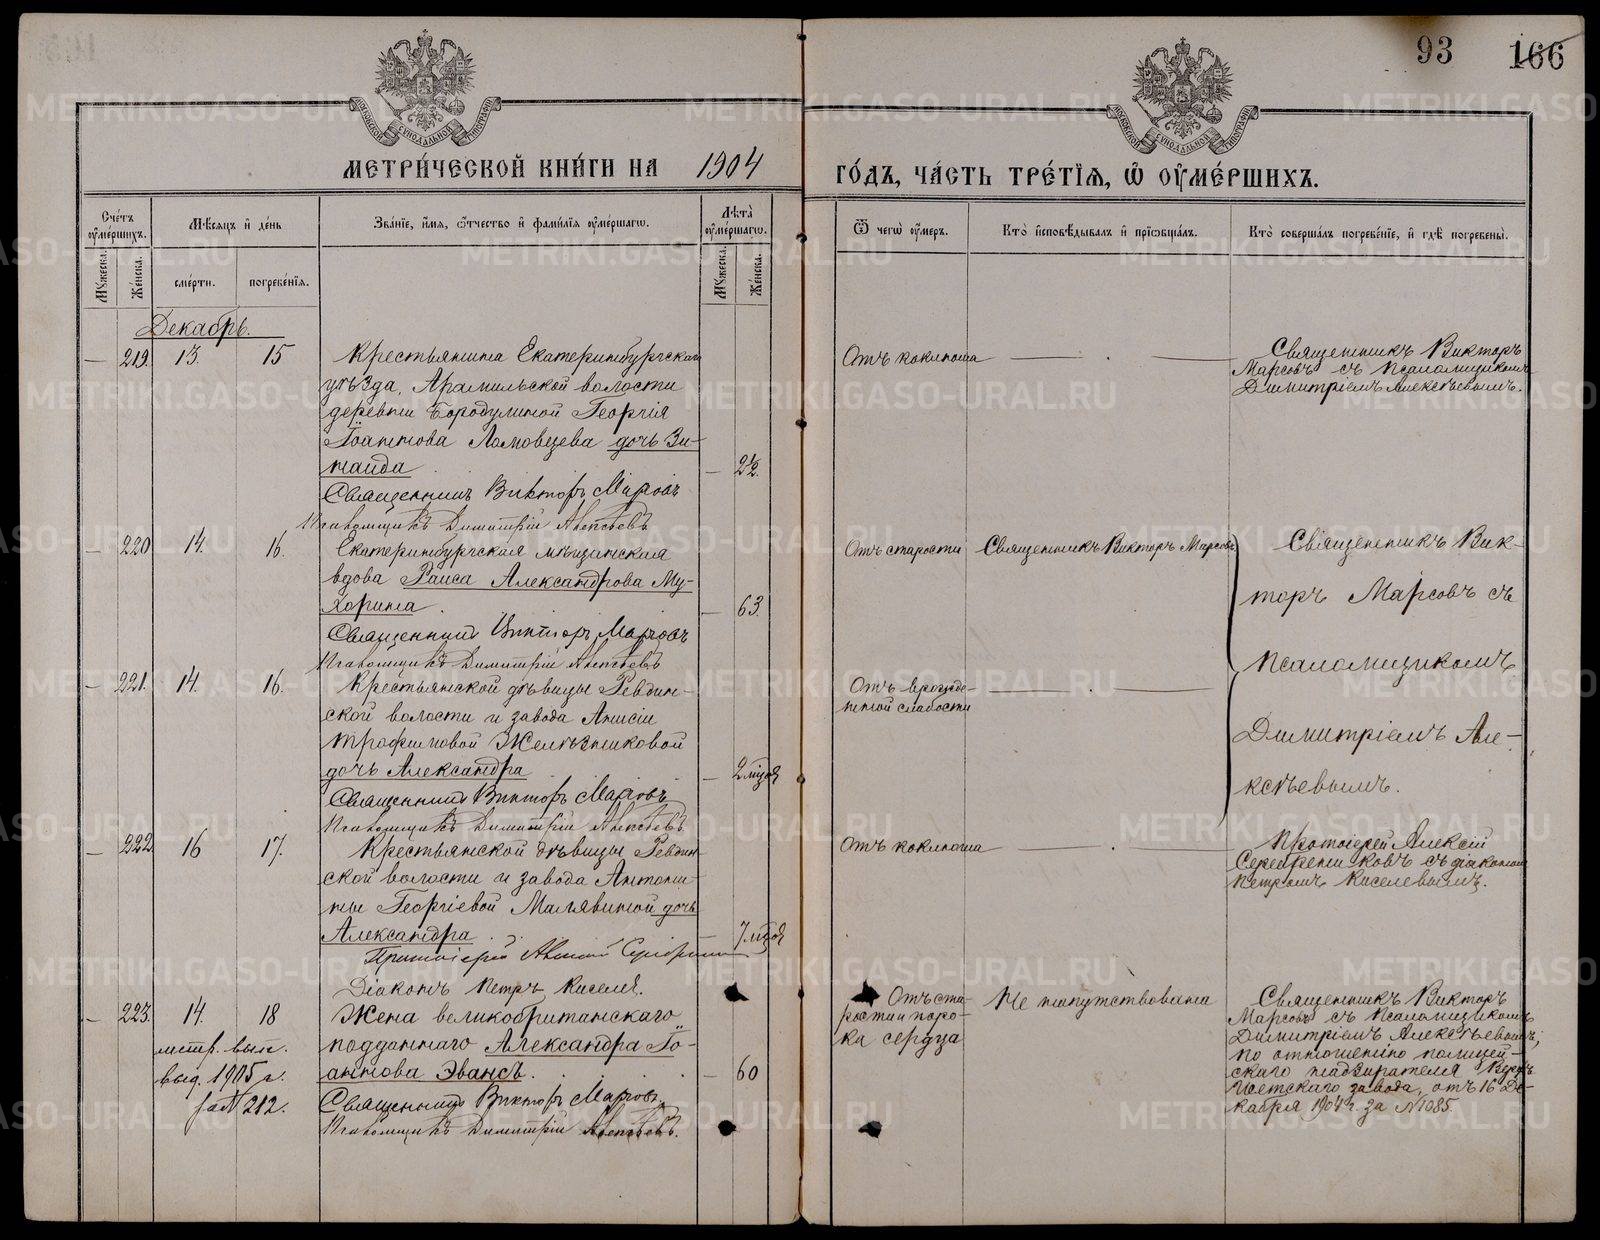 93 166
МЕТРИ́ЧЕСКОЙ КНИ́ГИ НА 1904 ГО́ДЪ, ЧА́СТЬ ТРЕ́ТІѦ, Ѿ ОУМЕ́РШИХЪ.
Сче́тъ оумершихъ.
Мужеска.
Женска.
Мѣсяцъ и день
смерти.
погребенія.
Званіе, имя, отчество и фамилія оумершагѡ.
Лѣта оумершагѡ.
Мужеска.
Женска.
Ѿ чегѡ оумеръ.
Кто исповѣдывалъ и пріѡбщалъ.
Кто совершалъ погребеніе, и гдѣ погребены.
Декабрь.
— 219. 13. 15
Крестьянина Екатеринбургскаго
уѣзда, Арамильской волости
деревни Бородулиной Георгія
Іоаннова Ломовцева дочь Зи-
наида — 2½.
Священникъ Викторъ Марсовъ
Псаломщикъ Димитрій Алексѣевъ
Отъ коклюша
Священникъ Викторъ
Марсовъ съ псаломщикомъ
Димитріемъ Алексѣевымъ.
— 220 14. 16.
Екатеринбургская мѣщанская
вдова Раиса Александрова Му-
хорина — 63.
Священникъ Викторъ Марсовъ
Псаломщикъ Димитрій Алексѣевъ
Отъ старости
Священникъ Викторъ Марсовъ
Священникъ Вик-
торъ Марсовъ съ
псаломщикомъ
Димитріемъ Але-
ксѣевымъ.
— 221. 14. 16.
Крестьянской дѣвицы Ревдин-
ской волости и завода Анисіи
Трофимовой Желѣзниковой
дочь Александра — 2 мѣся
Священникъ Викторъ Марсовъ
Псаломщикъ Димитрій Алексѣевъ
Отъ врожде-
нной слабости
— 222 16 17.
Крестьянской дѣвицы Ревдин-
ской волости и завода Антони-
ны Георгіевой Малявиной дочь
Александра — 7 мѣся
Протоіерей Алексій
Діаконъ Петръ Киселев.
Отъ коклюша
Протоіерей Алексій
Серебрениковъ съ діакономъ
Петромъ Киселевымъ.
— 223. 14. 18
метр. вып.
выд. 1905 г.
за № 212.
Жена великобританскаго
подданнаго Александра Іо-
аннова Эвансъ — 60
Священникъ Викторъ Марсовъ
Псаломщикъ Димитрій Алексѣевъ.
Отъ ста-
рости и поро-
ка сердца
Не напутствована
Священникъ Викторъ
Марсовъ съ псаломщикомъ
Димитріемъ Алексѣевымъ,
по отношенію полицей-
скаго надзирателя Верхъ-
Исетскаго завода, отъ 16 Де-
кабря 1904 г. за № 1085.
METRIKI.GASO-URAL.RU